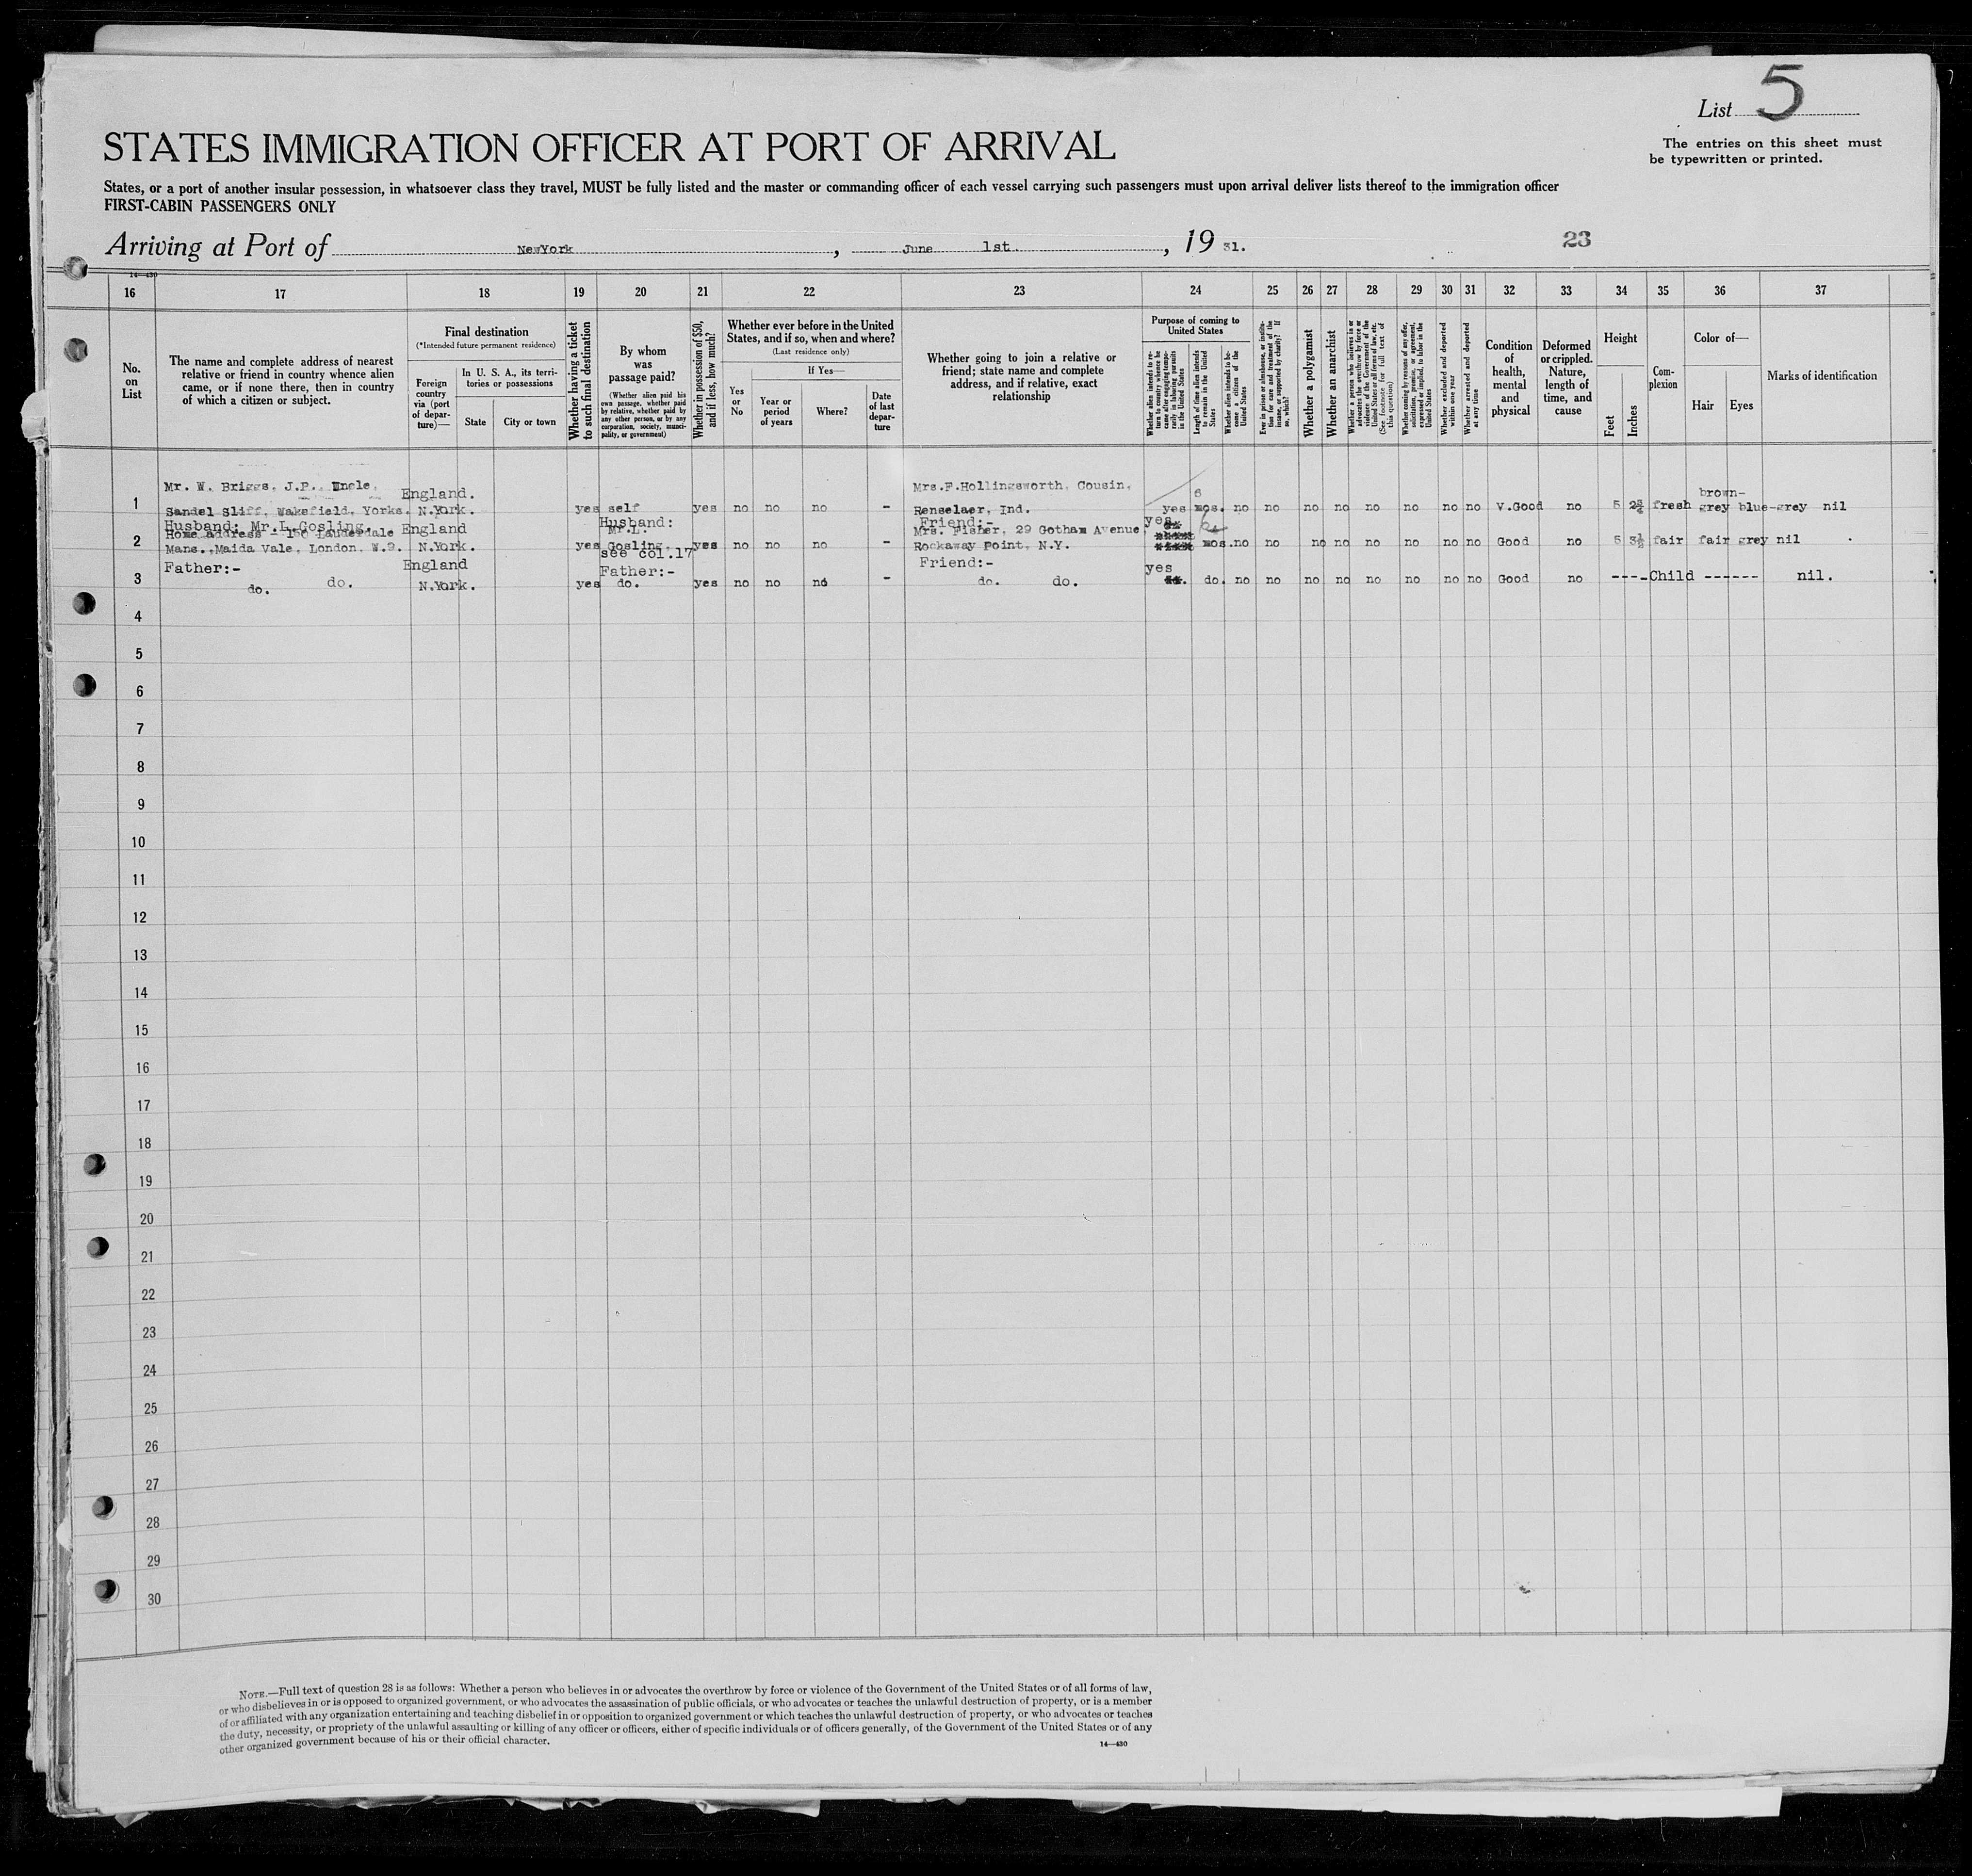 List 5
The entries on this sheet must
be typewritten or printed.
STATES IMMIGRATION OFFICER AT PORT OF ARRIVAL
States, or a port of another insular possession, in whatsoever class they travel, MUST be fully listed and the master or commanding officer of each vessel carrying such passengers must upon arrival deliver lists thereof to the immigration officer
FIRST-CABIN PASSENGERS ONLY
Arriving at Port of NewYork, June 1st, 19 31.
23
14—430
16 17 18 19 20 21 22 23 24 25 26 27 28 29 30 31 32 33 34 35 36 37
No.
on
List
The name and complete address of nearest
relative or friend in country whence alien
came, or if none there, then in country
of which a citizen or subject.
Final destination
(*Intended future permanent residence)
Foreign
country
via (port
of depar-
ture)—
In U. S. A., its terri-
tories or possessions
State
City or town
Whether having a ticket
to such final destination
By whom
was
passage paid?
(Whether alien paid his
own passage, whether paid
by relative, whether paid by
any other person, or by any
corporation, society, munici-
pality, or government)
Whether in possession of $50,
and if less, how much?
Whether ever before in the United
States, and if so, when and where?
(Last residence only)
Yes
or
No
If Yes—
Year or
period
of years
Where?
Date
of last
depar-
ture
Whether going to join a relative or
friend; state name and complete
address, and if relative, exact
relationship
Purpose of coming to
United States
Whether alien intends to re-
turn to country whence he
came after engaging tempo-
rarily in laboring pursuits
in the United States
Length of time alien intends
to remain in the United
States
Whether alien intends to be-
come a citizen of the
United States
Ever in prison or almshouse, or institu-
tion for care and treatment of the
insane, or supported by charity? If
so, which?
Whether a polygamist
Whether an anarchist
Whether a person who believes in or
advocates the overthrow by force or
violence of the Government of the
United States or all forms of law, etc.
(See footnote for full text of
this question)
Whether coming by reasons of any offer,
solicitation, promise, or agreement,
expressed or implied, to labor in the
United States
Whether excluded and deported
within one year
Whether arrested and deported
at any time
Condition
of
health,
mental
and
physical
Deformed
or crippled.
Nature,
length of
time, and
cause
Height
Feet
Inches
Com-
plexion
Color of—
Hair
Eyes
Marks of identification
Mr. W. Briggs, J.P., Uncle, England. Mrs.F.Hollingsworth, Cousin, 6 brown-
1 Sandel Sliff, Wakefield, Yorks. N.York. yes self yes no no no - Renselaer, Ind. yes mos. no no no no no no no no V.Good no 5 2½ fresh grey blue-grey nil
Husband: Mr.L.Gosling, England Husband: Friend:- yes
Home address - 150 Lauderdale Mr.L. Mrs. Fisher, 29 Gotham Avenue,
2 Mans.,Maida Vale, London. W.9. N.York. yes Gosling, yes no no no - Rockaway Point, N.Y. mos. no no no no no no no no Good no 5 3½ fair fair grey nil
see col.17
Father:- England Father:- Friend:- yes
3 do. do. N.York. yes do. yes no no no - do. do. do. no no no no no no no no Good no ----Child ------ nil.
4
5
6
7
8
9
10
11
12
13
14
15
16
17
18
19
20
21
22
23
24
25
26
27
28
29
30
NOTE.—Full text of question 28 is as follows: Whether a person who believes in or advocates the overthrow by force or violence of the Government of the United States or of all forms of law,
or who disbelieves in or is opposed to organized government, or who advocates the assassination of public officials, or who advocates or teaches the unlawful destruction of property, or is a member
of or affiliated with any organization entertaining and teaching disbelief in or opposition to organized government or which teaches the unlawful destruction of property, or who advocates or teaches
the duty, necessity, or propriety of the unlawful assaulting or killing of any officer or officers, either of specific individuals or of officers generally, of the Government of the United States or of any
other organized government because of his or their official character.
14—430